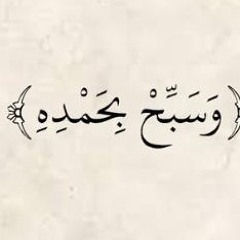 ﴿وَسَبِّحْ بِحَمْدِهِ﴾